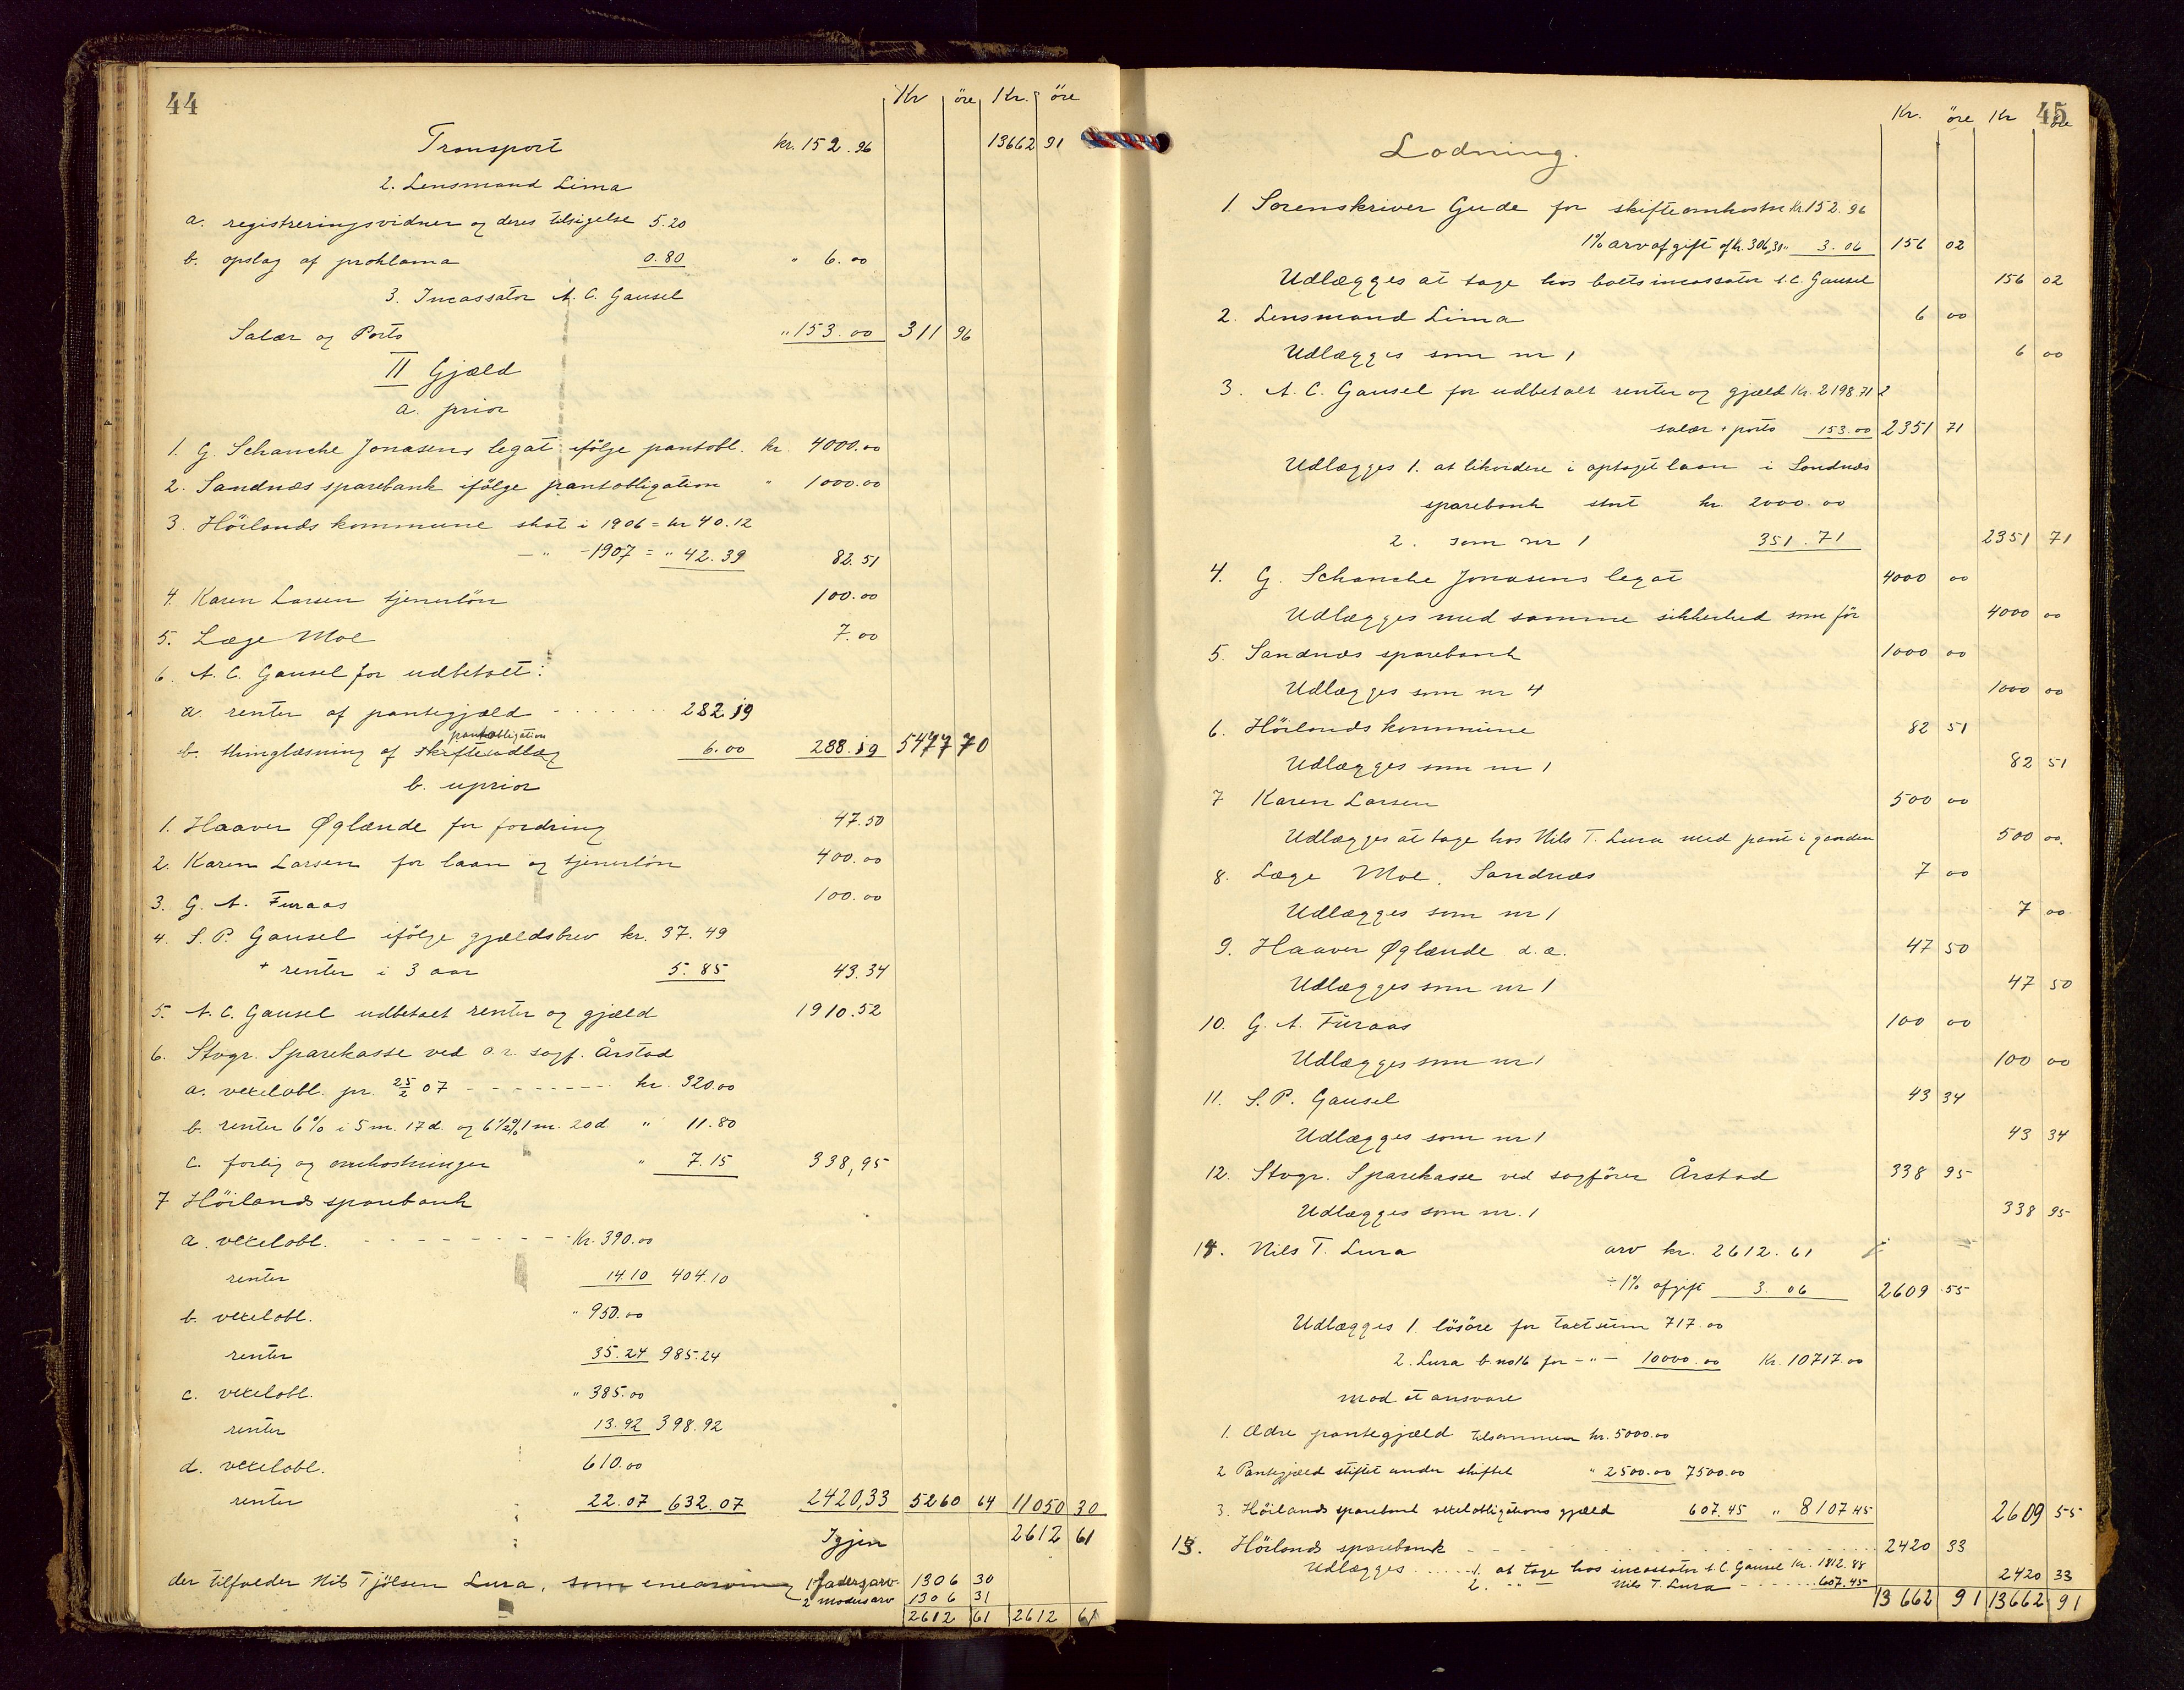 44
Kr øre Kr. øre
Transport kr. 152.96 13662 91
2. Lensmand Lima
a. registreringsvidner og deres tilsigelse 5.20
b. opslag af proklama 0.80 " 6.00
3. Incassator A. C. Gausel
Salær og Porto " 153.00 311 96
II Gjæld
a. prior
1. G. Schanche Jonasens legat ifølge pantobl. kr. 4000.00
2. Sandnæs sparebank ifølge pantobligation " 1000.00
3. Höilands kommune skat i 1906 = kr 40.12
—"— 1907 = " 42.39 82.51
4. Karen Larsen tjenerlön 100.00
5. Læge Moe 7.00
6. A. C. Gausel for udbetalt:
a. renter af pantegjæld - - - - - - 282.19
pantobligation
b. thinglæsning af skifteudlæg 6.00 288.19 5477 70
b. uprior
1. Haaver Øglænde for fordring 47.50
2. Karen Larsen for laan og tjenerlön 400.00
3. G. A. Furaas 100.00
4. S. P. Gausel ifölge gjældsbrev kr. 37.49
+ renter i 3 aar 5.85 43.34
5. A. C. Gausel udbetalt renter og gjæld 1910.52
6. Stvgr. Sparekasse ved o.r. sagf. Årstad
a. vexelobl. pr. 25/2 07 - - - - - - - - kr. 320.00
b. renter 6% i 5 m. 17 d. og 6½% 1 m. 20 d " 11.80
c. forlig og omkostninger " 7.15 338,95
7 Höilands sparebank
a. vexelobl. - - - - - - - - - Kr. 390.00
renter 14.10 404.10
b. vexelobl. " 950.00
renter 35.24 985.24
c. vexelobl. " 385.00
renter 13.92 398.92
d. vexelobl. 610.00
renter 22.07 632.07 2420,33 5260 64 11050 30
Igjen 2612 61
der tilfalder Nils Tjölsen Lura, som enearving 1 fadersarv 1306 30
2 modersarv 1306 31
2612 61 2612 61
45
Kr. öre Kr öre
Lodning.
1. Sorenskriver Gude for skifteomkostn Kr. 152.96
1% arvafgift af kr. 306,30 " 3.06 156 02
Udlægges at tage hos boets incassator A. C. Gausel 156 02
2. Lensmand Lima 6 00
Udlægges som nr 1 6 00
3. A. C. Gausel for udbetalt renter og gjæld Kr. 2198.71
salær + porto 153.00 2351 71
Udlægges 1. at likvidere i optaget laan i Sandnæs
sparebank stort kr. 2000.00
2. som nr 1 351.71 2351 71
4. G. Schanche Jonasens legat 4000 00
Udlægges med samme sikkerhed som för 4000 00
5. Sandnæs sparebank 1000 00
Udlægges som nr 4 1000 00
6. Höilands kommune 82 51
Udlægges som nr 1 82 51
7 Karen Larsen 500 00
Udlægges at tage hos Nils T. Lura med pant i gaarden 500 00.
8. Læge Moe, Sandnæs 7 00
Udlægges som nr 1 7 00
9. Haaver Øglænde d.æ. 47 50
Udlægges som nr 1 47 50
10. G. A. Furaas 100 00
Udlægges som nr 1 100 00
11. S. P. Gausel 43 34
Udlægges som nr 1 43 34
12. Stvgr. Sparekasse ved sagförer Årstad 338 95
Udlægges som nr. 1 338 95
14. Nils T. Lura arv kr. 2612.61
÷ 1% afgift 3.06 2609 55
Udlægges 1. lösöre for taxtsum 717.00
2. Lura b.no 16 for -"- 10000.00 Kr. 10717.00
mod at ansvare
1. Ældre pantegjæld tilsammen kr. 5000.00
2 Pantegjæld stiftet under skiftet " 2500.00 7500.00
3. Höilands sparebank vexelobligations gjæld 607.45 " 8107.45 2609 55
13. Höilands sparebank - - - - - - 2420 33
Udlægges - - - - 1. at tage hos incassator A. C. Gausel Kr. 1812.88
2. " — Nils T. Lura - - - - - 607.45 2420 33
13662 91 13662 91